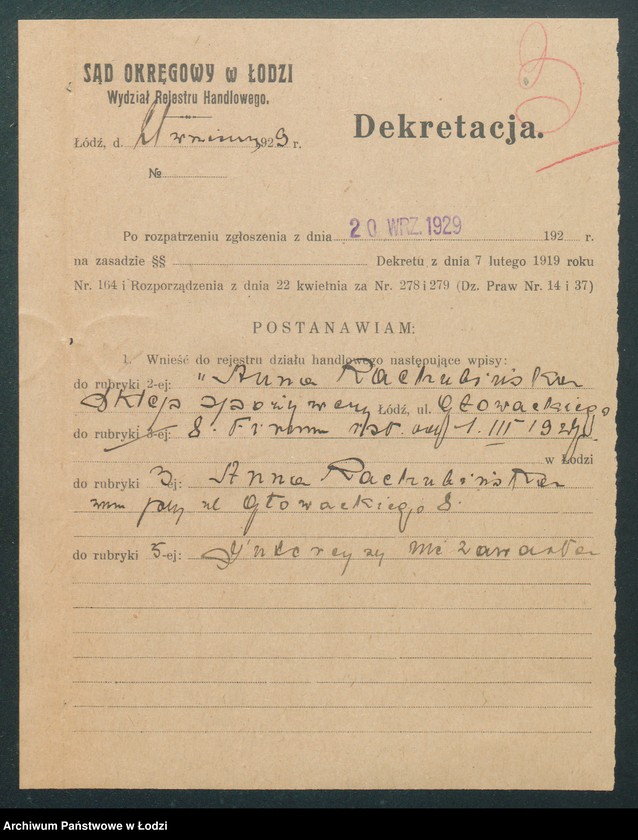 SĄD OKRĘGOWY w ŁODZI
Wydział Rejestru Handlowego.
Łódź, d. 21 września 1929 r.
Dekretacja.
№
Po rozpatrzeniu zgłoszenia z dnia 20 WRZ. 1929 192 r.
na zasadzie §§ Dekretu z dnia 7 lutego 1919 roku
Nr. 164 i Rozporządzenia z dnia 22 kwietnia za Nr. 278 i 279 (Dz. Praw Nr. 14 i 37)
POSTANAWIAM:
1. Wnieść do rejestru działu handlowego następujące wpisy:
do rubryki 2-ej: "Anna Rachubińska
Sklep spożywczy Łódź, ul. Głowackiego
do rubryki 3-ej: 8. Firma ist. od 1. III 192
w Łodzi
do rubryki 3 ej: Anna Rachubińska
zam przy ul Głowackiego 8.
do rubryki 5-ej: Intercyzy nie zawarła
Archiwum Państwowe w Łodzi